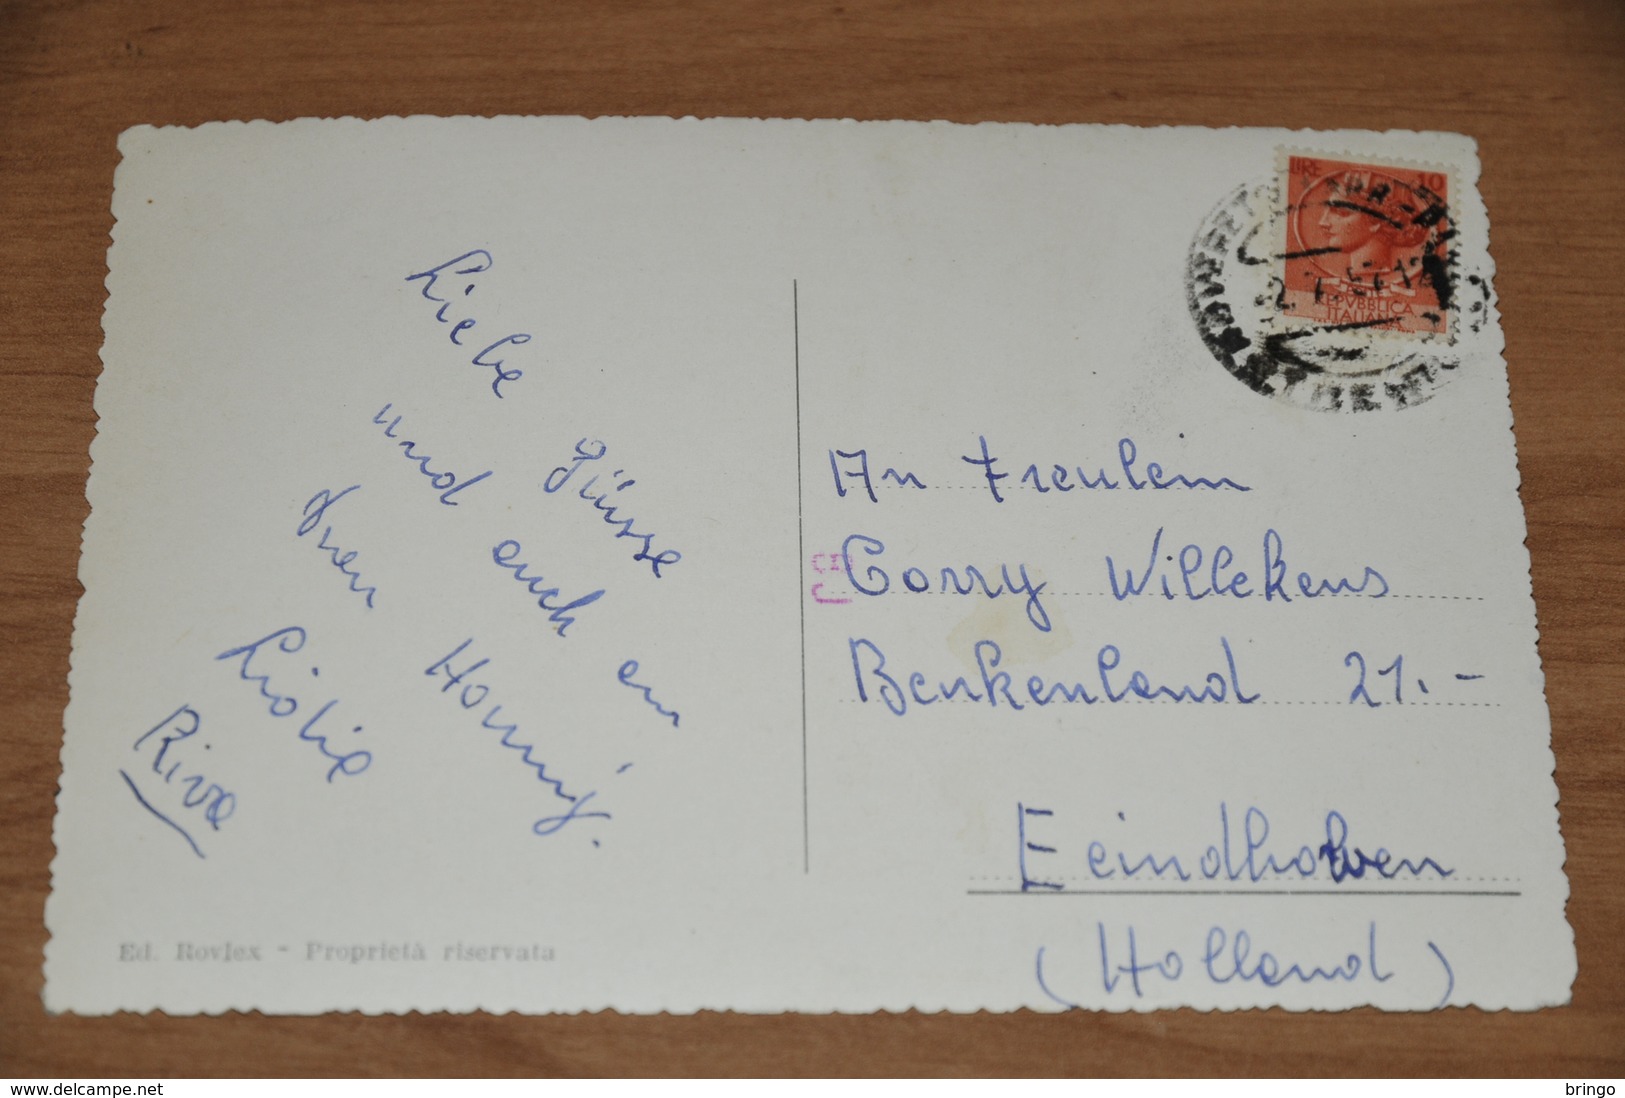 Liebe Grüsse
und auch an
Deinen Honnij.
Lidie
Riva
Ed. Rovlex - Proprietà riservata
LIRE 10
REPVBBLICA
ITALIANA
An Freulein
Corry Willekens
Benkenland 21.-
Eeindhoven
(Holland)
delcampe.net
bringo